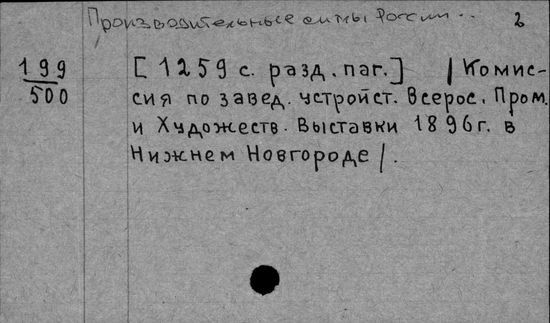 Производительные силы России... 2
199
500
[1259 с. разд. паг.] /Комис-
сия по завед. устройст. Всерос. Пром.
и Художеств. Выставки 1896 г. в
Нижнем Новгороде/.